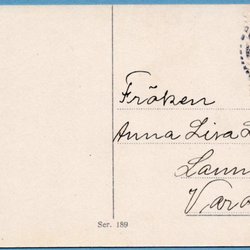 Fröken
Anna Lisa L
Lann
Vara
Ser. 189